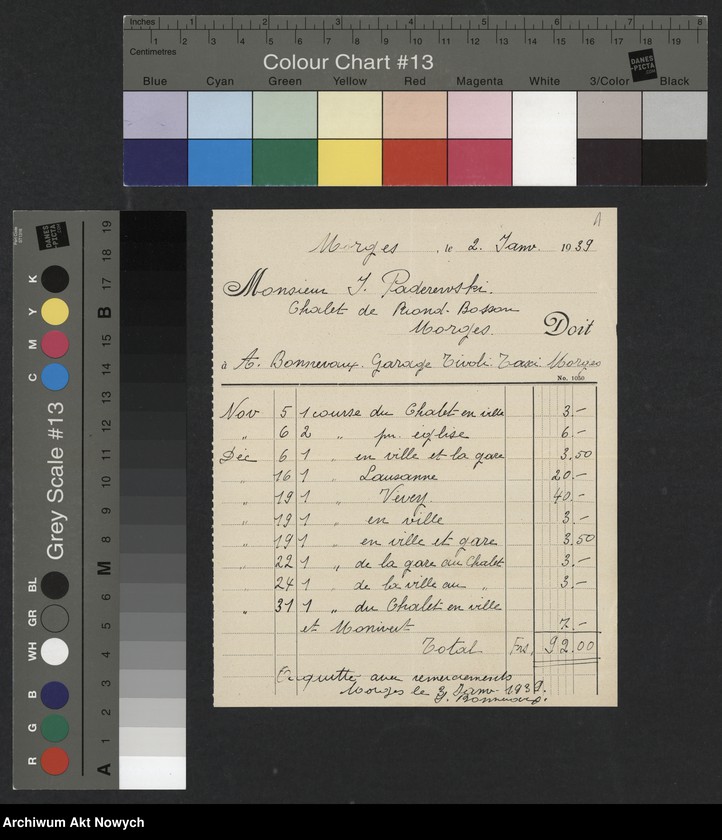 Inches 1 2 3 4 5 6 7 8
1 2 3 4 5 6 7 8 9 10 11 12 13 14 15 16 17 18 19
Centimetres
Colour Chart #13
DANES-PICTA.COM
Blue Cyan Green Yellow Red Magenta White 3/Color Black
Grey Scale #13
DANES-PICTA.COM
R G B WH GR BL C M Y K
A 1 2 3 4 5 6 M 8 9 10 11 12 13 14 15 B 17 18 19
1
Morges, le 2. Janv. 1939
Monsieur J. Paderewski.
Chalet de Riond-Bosson
Morges. Doit
à A. Bonnevaux. Garage Tivoli. Taxi. Morges
No. 1050
Nov 5 1 course du Chalet en ville 3.—
" 6 2 " pr. église 6.—
Déc 6 1 " en ville et la gare 3.50
" 16 1 " Lausanne 20.—
" 19 1 " Vevey. 40.—
" 19 1 " en ville 3.—
" 19 1 " en ville et gare 3.50
" 22 1 " de la gare au Chalet 3.—
" 24 1 " de la ville au " 3.—
" 31 1 " du Chalet en ville
et Monivert 7.—
Total Frs. 92.00
acquitté avec remerciements
Morges le 3 Janv. 1939.
Bonnevaux.
Archiwum Akt Nowych